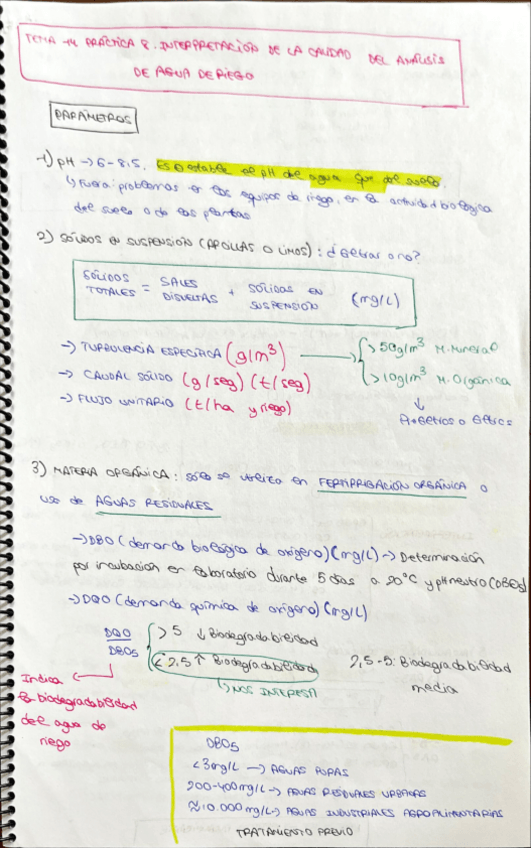 TEMA 14 PRÁCTICA 8. INTERPRETACIÓN DE LA CALIDAD DEL ANÁLISIS
DE AGUA DE RIEGO
PARÁMETROS
1) pH → 6-8,5. Es + estable el pH del agua que del suelo.
↳ Fuera: problemas en los equipos de riego, en la actividad biológica
del suelo o de las plantas
2) SÓLIDOS EN SUSPENSIÓN (ARCILLAS O LIMOS): ¿Filtrar o no?
SÓLIDOS TOTALES = SALES DISUELTAS + SÓLIDOS EN SUSPENSIÓN (mg/L)
→ TURBULENCIA ESPECÍFICA (g/m³) → > 50g/m³ M. Mineral
→ CAUDAL SÓLIDO (g/seg) (t/seg) > 10g/m³ M. Orgánica
→ FLUJO UNITARIO (t/ha y riego) ↓
Filtros
3) MATERIA ORGÁNICA: sólo se utiliza en FERTIRRIGACIÓN ORGÁNICA o
uso de AGUAS RESIDUALES
→ DBO (demanda biológica de oxígeno) (mg/L) → Determinación
por incubación en laboratorio durante 5 días a 20°C y pH neutro (DBO5)
→ DQO (demanda química de oxígeno) (mg/L)
DQO / DBO5 > 5 ↓ Biodegradabilidad
< 2,5 ↑ Biodegradabilidad 2,5-5: Biodegradabilidad
↳ NOS INTERESA media
Indica
la biodegradabilidad
del agua de
riego
DBO5
< 3mg/L → AGUAS PURAS
200-400mg/L → AGUAS RESIDUALES URBANAS
≈ 10.000mg/L → AGUAS INDUSTRIALES AGROALIMENTARIAS
TRATAMIENTO PREVIO